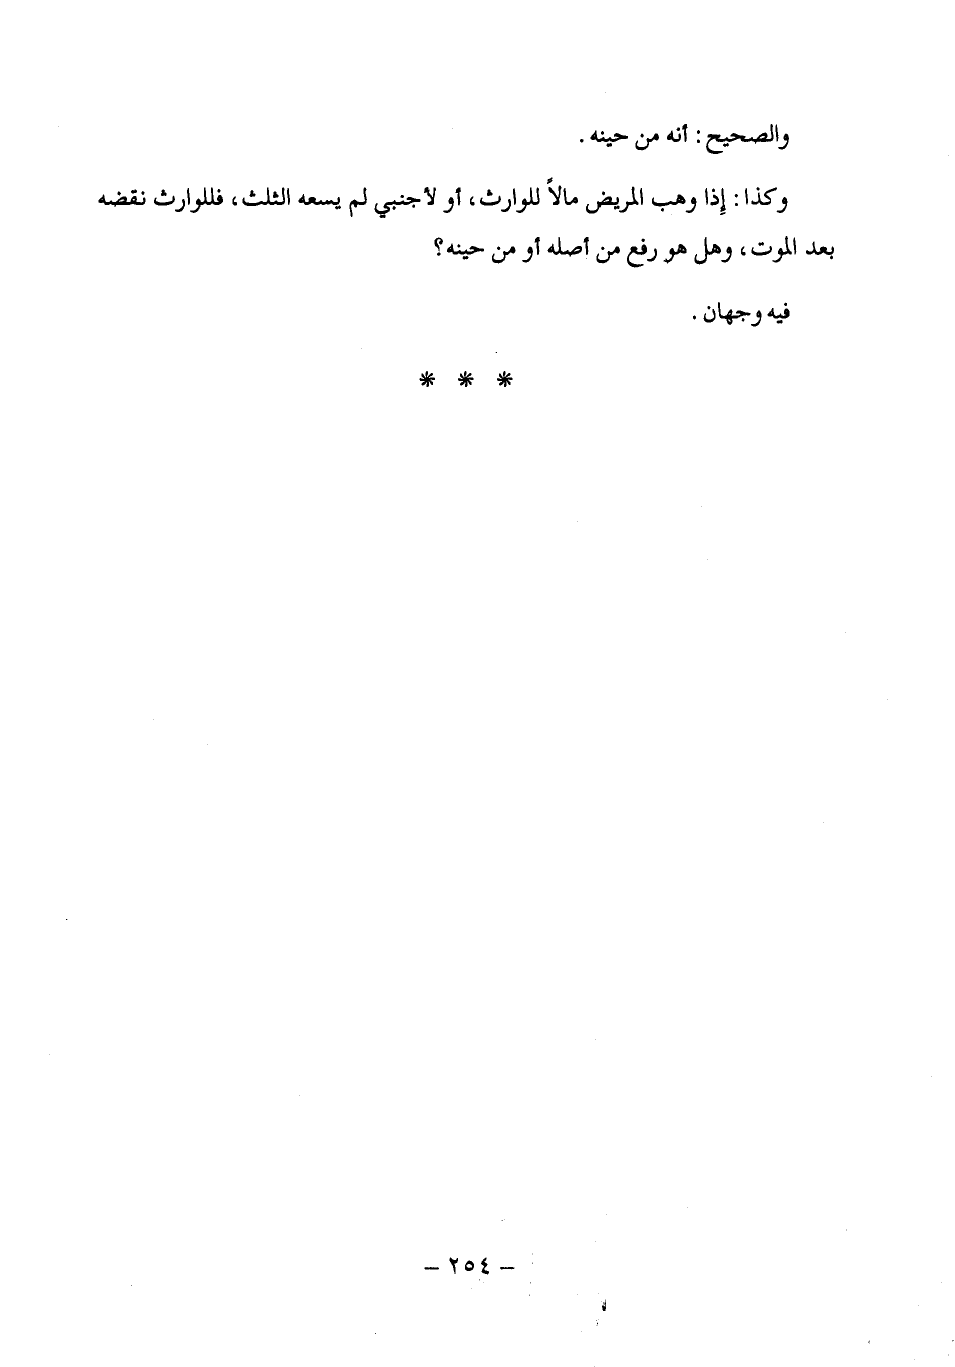 والصحيح: أنه من حينه.
وكذا: إِذا وهب المريض مالاً للوارث، أو لأجنبي لم يسعه الثلث، فللوارث نقضه
بعد الموت، وهل هو رفع من أصله أو من حينه؟
فيه وجهان.
* * *
– ٢٥٤ –